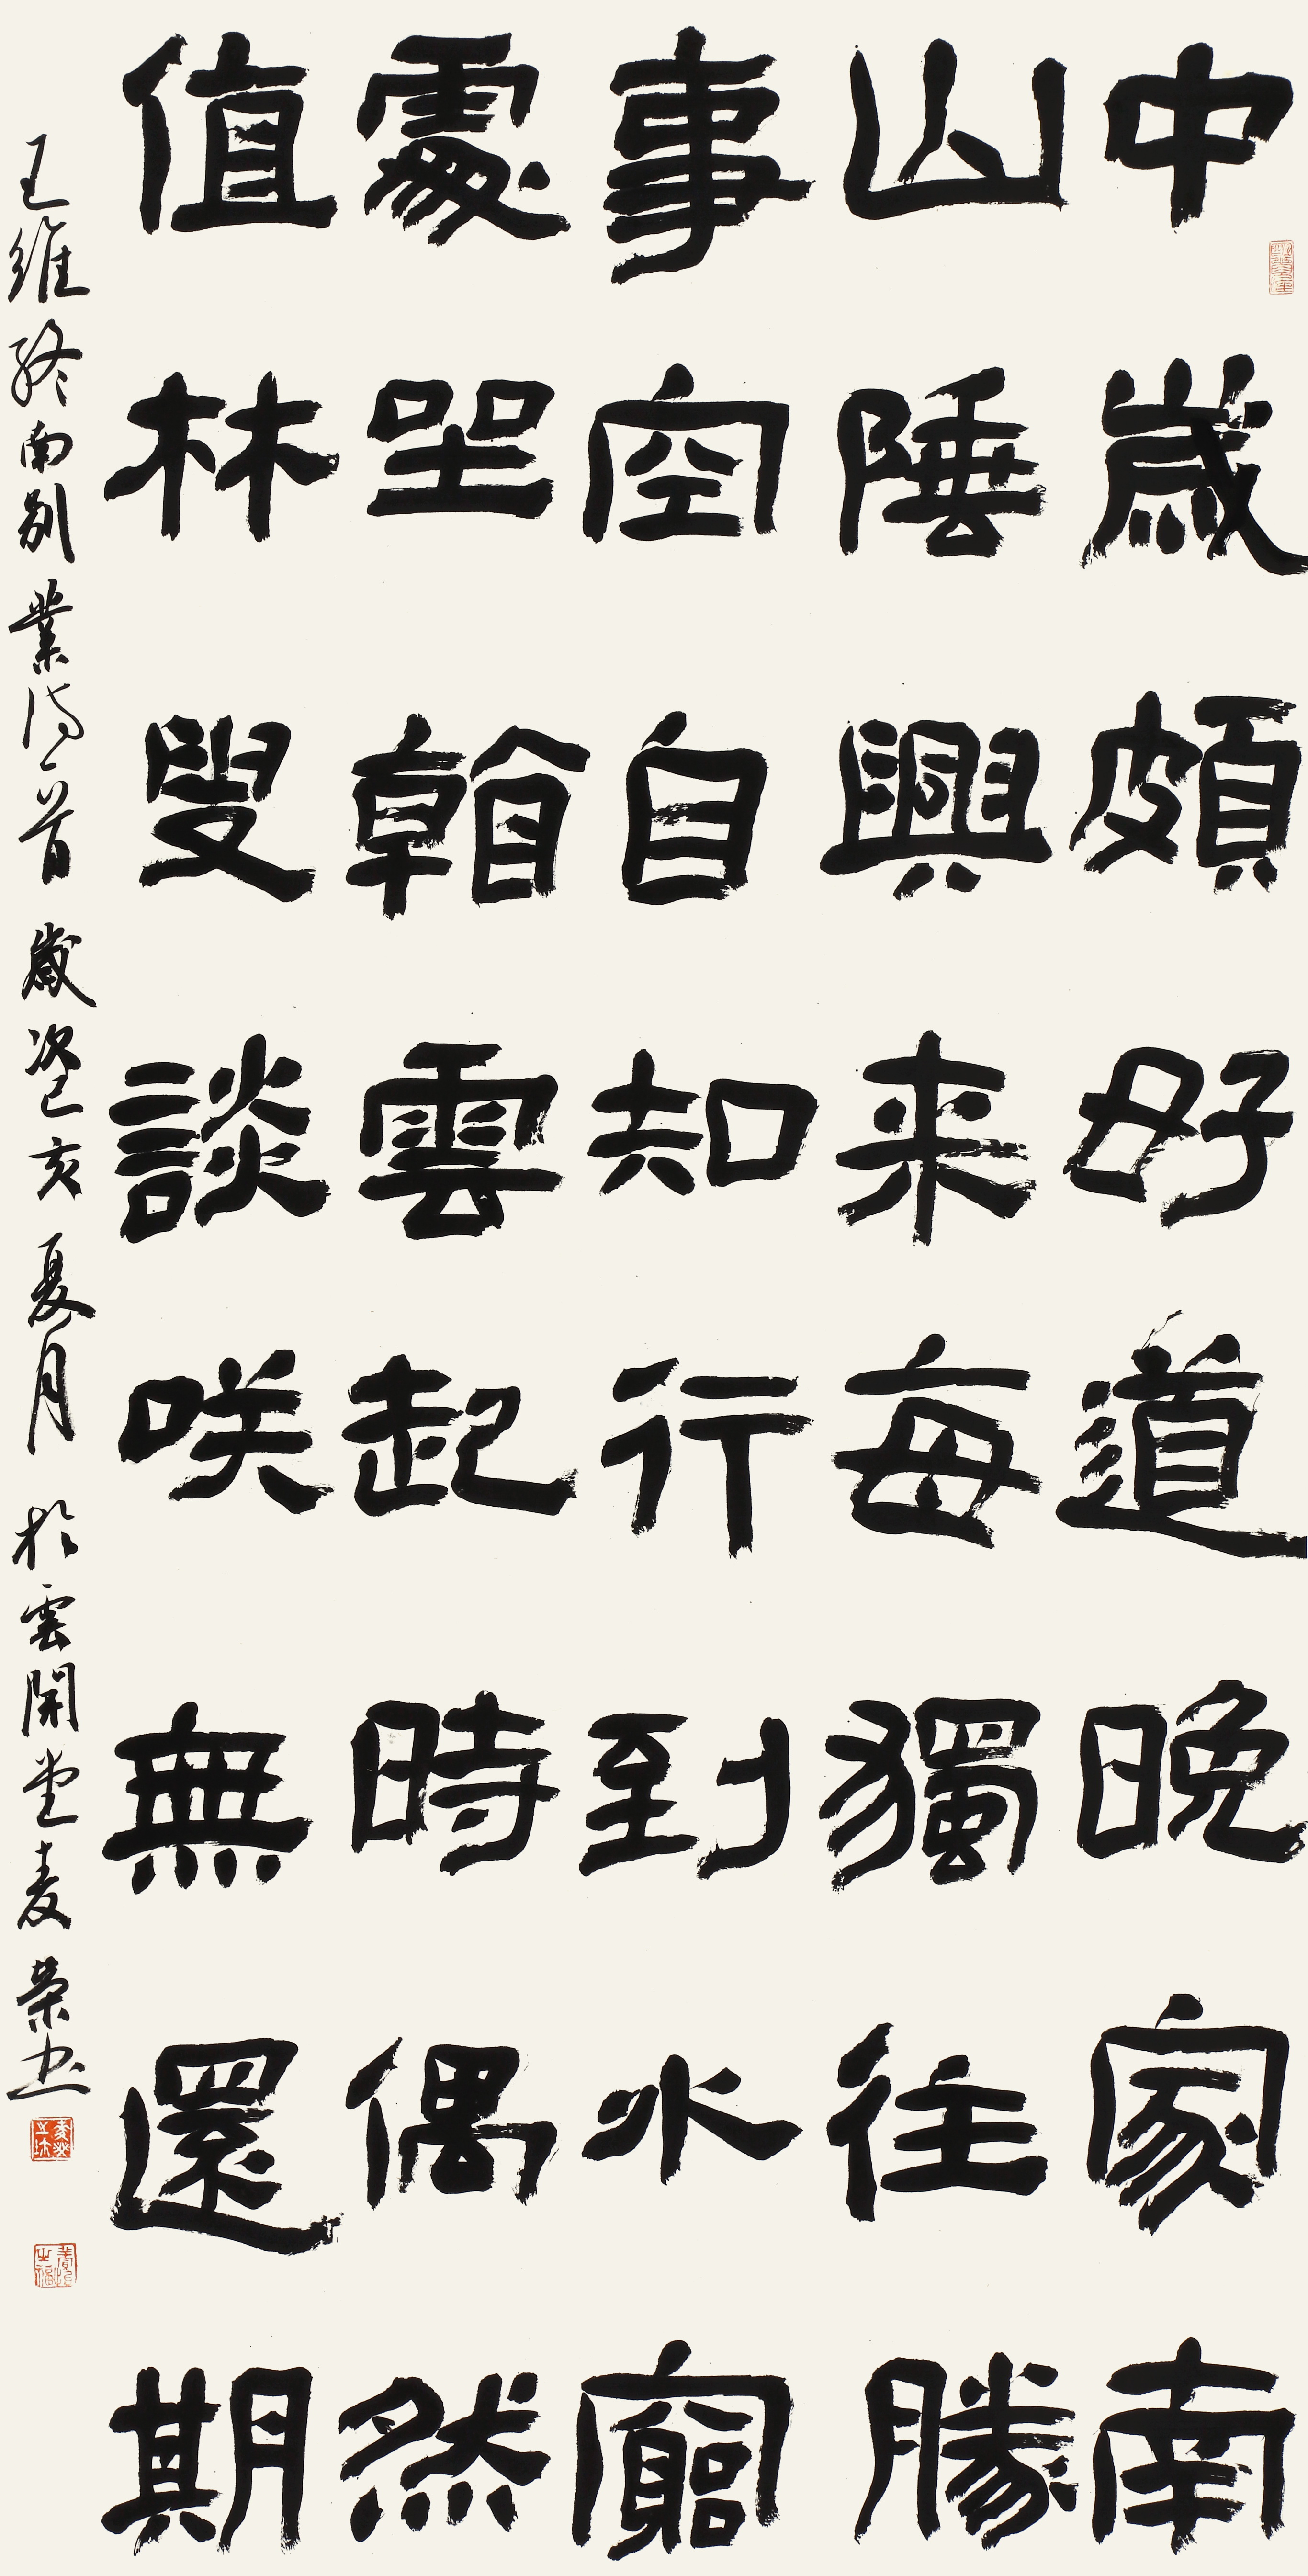 中歲頗好道晚家南
山陲興来每獨往勝
事空自知行到水窮
處坐看雲起時偶然
值林叟談咲無還期
王維終南別業詩一首歲次己亥夏月於雲開堂麦榮書